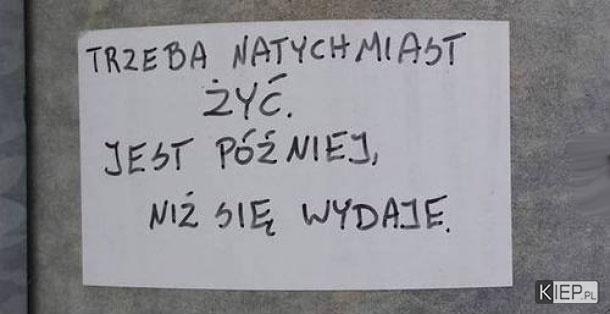 TRZEBA NATYCHMIAST
ŻYĆ.
JEST PÓŹNIEJ,
NIŻ SIĘ WYDAJE.
KIEP.PL